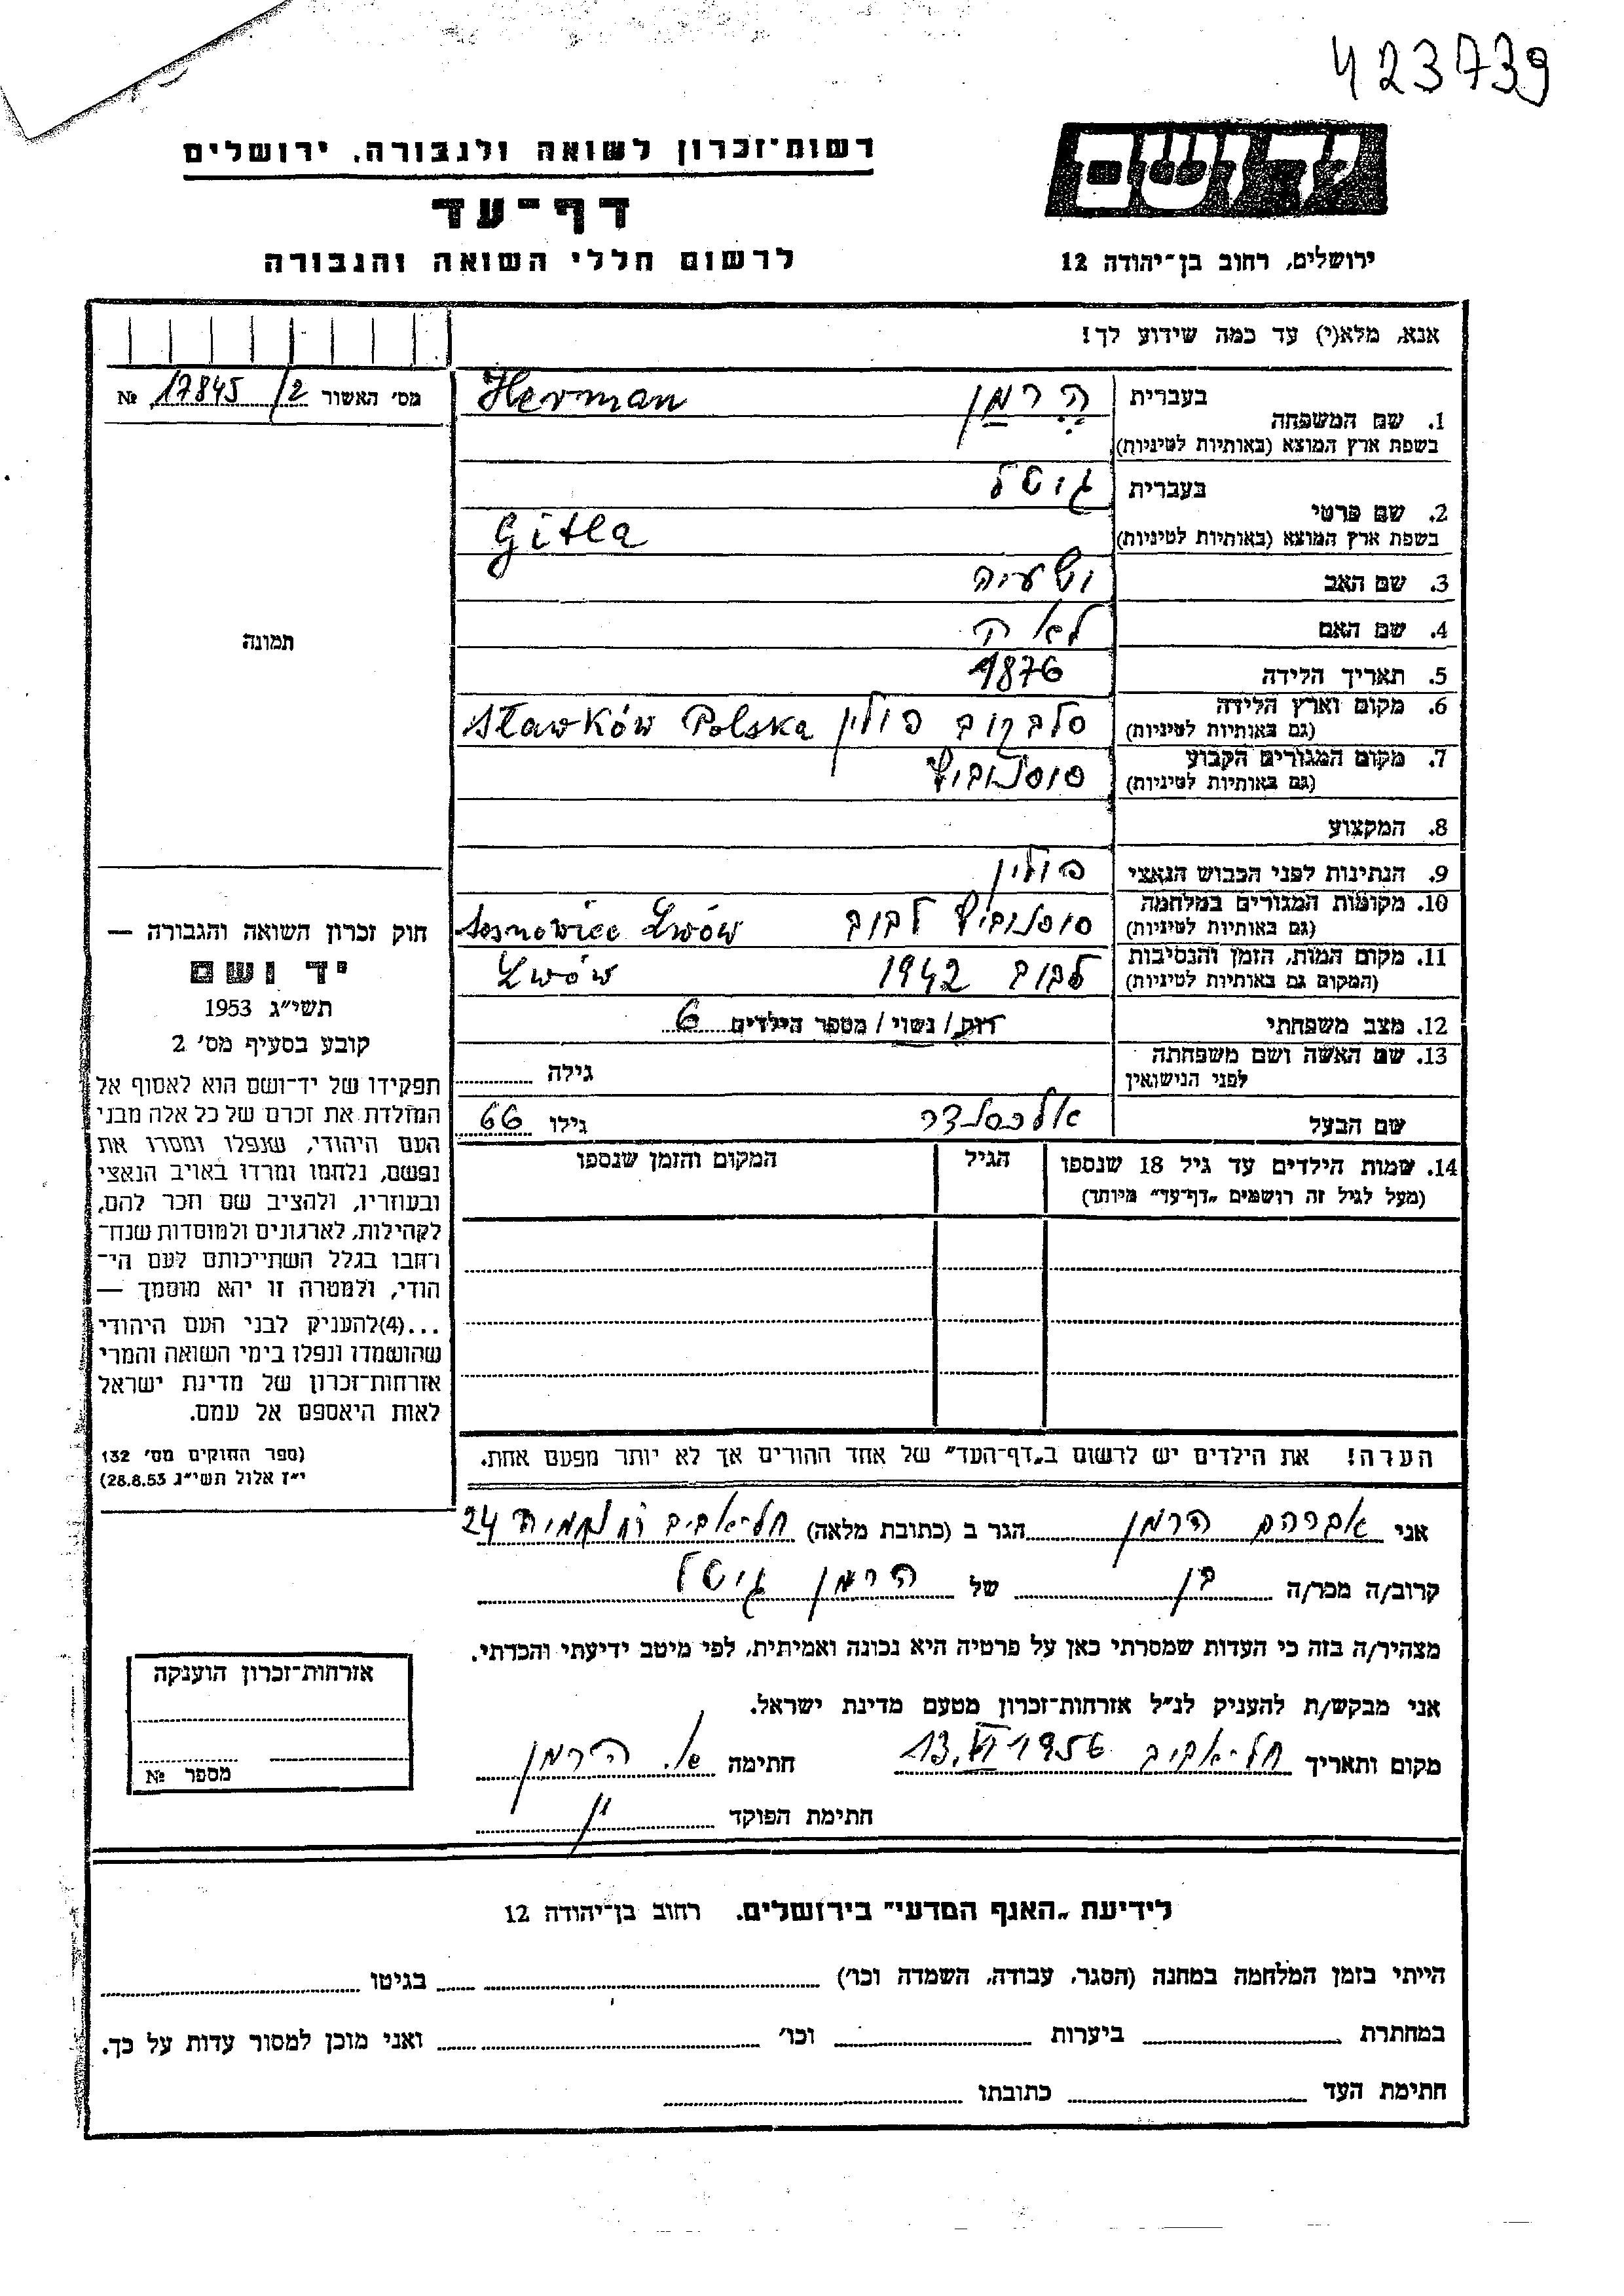 423739
רשות־זכרון לשואה ולגבורה, ירושלים
יד ושם
דף־עד
לרשום חללי השואה והגבורה
ירושלים, רחוב בן־יהודה 12
אנא, מלא(י) עד כמה שידוע לך!
מס׳ האשור 17845/2 №
1. שם המשפחה
בעברית הרמן Herman
בשפת ארץ המוצא (באותיות לטיניות)
2. שם פרטי
בעברית גיטל
בשפת ארץ המוצא (באותיות לטיניות) Gitla
3. שם האב ישעיה
4. שם האם לאה
5. תאריך הלידה 1876
6. מקום וארץ הלידה סלבקוב פולין Sławków Polska
(גם באותיות לטיניות)
7. מקום המגורים הקבוע סוסנוביץ
(גם באותיות לטיניות)
8. המקצוע
9. הנתינות לפני הכבוש הנאצי פולין
10. מקומות המגורים במלחמה סוסנוביץ לבוב Sosnowiec Lwów
(גם באותיות לטיניות)
11. מקום המות, הזמן והנסיבות לבוב 1942 Lwów
(המקום גם באותיות לטיניות)
12. מצב משפחתי רוק/נשוי/מספר הילדים 6
13. שם האשה ושם משפחתה גילה
לפני הנישואין
שם הבעל אלכסנדר גילו 66
14. שמות הילדים עד גיל 18 שנספו הגיל המקום והזמן שנספו
(מעל לגיל זה רושמים „דף־עד״ מיוחד)
הערה! את הילדים יש לרשום ב„דף־העד״ של אחד ההורים אך לא יותר מפעם אחת.
תמונה
חוק זכרון השואה והגבורה —
יד ושם
תשי״ג 1953
קובע בסעיף מס׳ 2
תפקידו של יד־ושם הוא לאסוף אל
המולדת את זכרם של כל אלה מבני
העם היהודי, שנפלו ומסרו את
נפשם, נלחמו ומרדו באויב הנאצי
ובעוזריו, ולהציב שם וזכר להם,
לקהילות, לארגונים ולמוסדות שנח־
רחבו בגלל השתייכותם לעם הי־
הודי, ולמטרה זו יהא מוסמך —
...(4)להעניק לבני העם היהודי
שהושמדו ונפלו בימי השואה והמרי
אזרחות־זכרון של מדינת ישראל
לאות היאספם אל עמם.
(ספר החוקים מס׳ 132
י״ז אלול תשי״ג 28.8.53)
אני אברהם הרמן הגר ב (כתובת מלאה) תל־אביב 24
קרוב/ה מכר/ה בן של הרמן גיטל
מצהיר/ה בזה כי העדות שמסרתי כאן על פרטיה היא נכונה ואמיתית, לפי מיטב ידיעתי והכרתי.
אני מבקש/ת להעניק לנ״ל אזרחות־זכרון מטעם מדינת ישראל.
מקום ותאריך תל־אביב 13.VI 1956 חתימה א. הרמן
חתימת הפוקד
אזרחות־זכרון הוענקה
מספר №
לידיעת „האגף המדעי״ בירושלים. רחוב בן־יהודה 12
הייתי בזמן המלחמה במחנה (הסגר, עבודה, השמדה וכו׳) בגיטו
במחתרת ביערות וכו׳ ואני מוכן למסור עדות על כך.
חתימת העד כתובתו